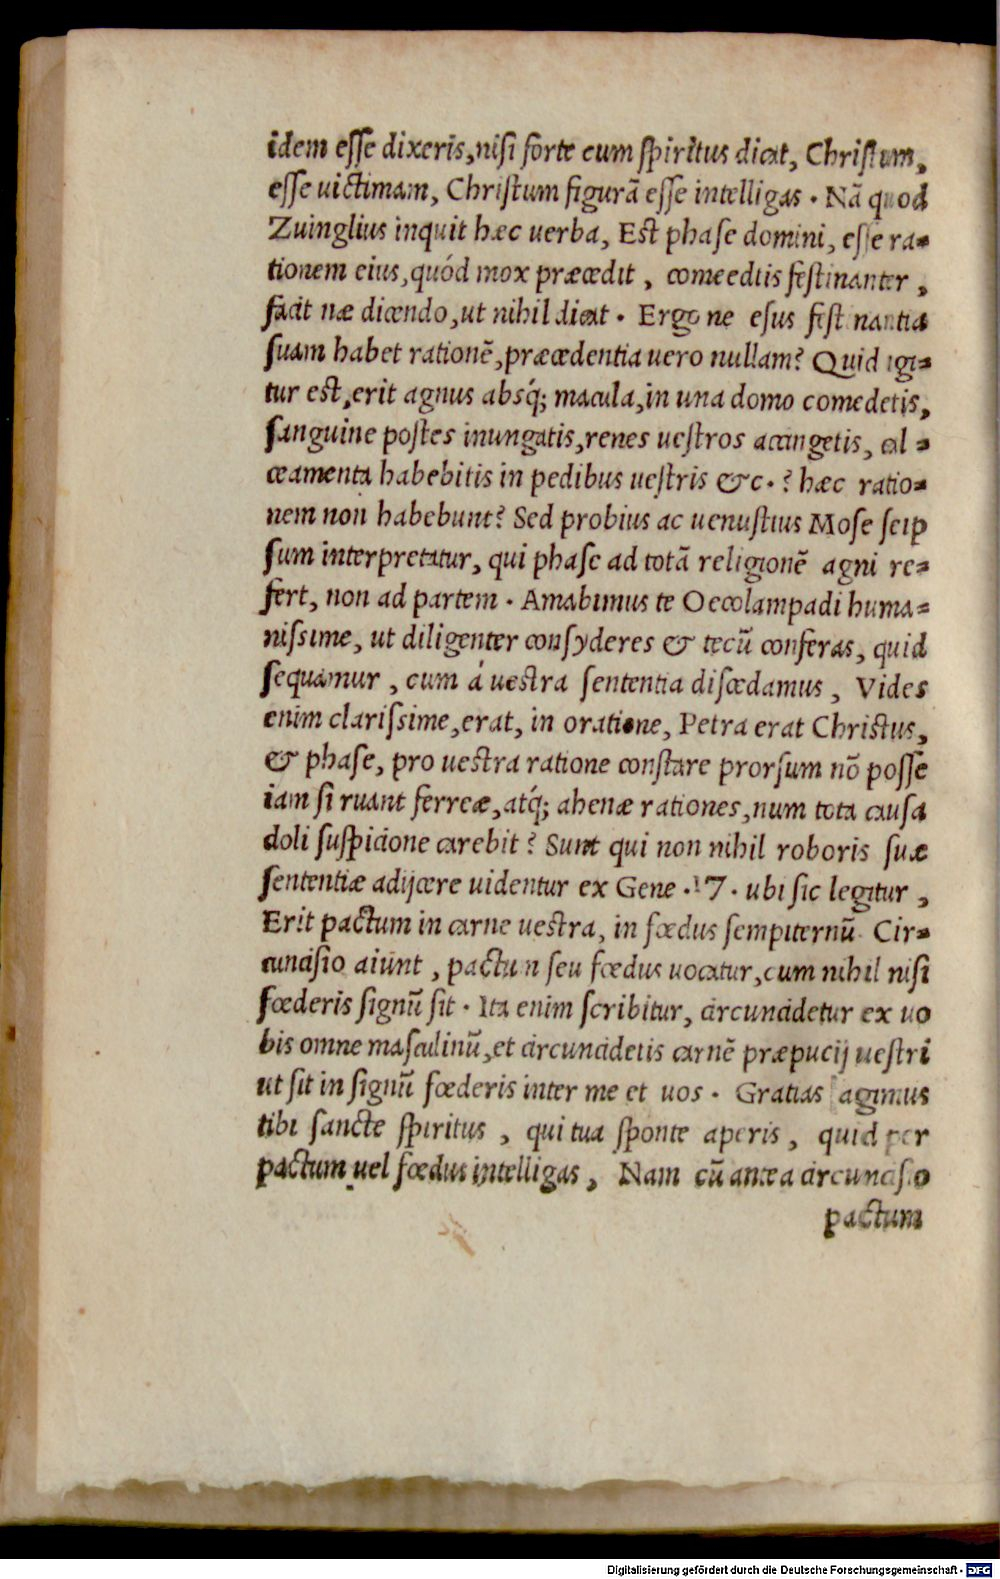 idem eſſe dixeris, niſi forte cum ſpiritus dicat, Chriſtum,
eſſe uictimam, Chriſtum figurã eſſe intelligas . Nã quod
Zuinglius inquit hæc uerba, Eſt phaſe domini, eſſe ra⸗
tionem eius, quód mox præcedit , comeedtis feſtinanter ,
facit næ dicendo, ut nihil dicat . Ergo ne eſus feſtinantia
ſuam habet rationẽ, præcedentia uero nullam? Quid igi⸗
tur eſt, erit agnus absq́; macula, in una domo comedetis,
ſanguine poſtes inungatis, renes ueſtros accingetis, cal⸗
ceamenta habebitis in pedibus ueſtris &c. ? hæc ratio⸗
nem non habebunt? Sed probius ac uenuſtius Moſe ſeip
ſum interpretatur, qui phaſe ad totã religionẽ agni re⸗
fert, non ad partem . Amabimus te Oecolampadi huma⸗
niſsime, ut diligenter conſyderes & tecũ conferas, quid
ſequamur , cum á ueſtra ſententia diſcedamus , Vides
enim clariſsime, erat, in oratione, Petra erat Chriſtus,
& phaſe, pro ueſtra ratione conſtare prorſum nõ poſſe
iam ſi ruant ferreæ, atq́; ahenæ rationes, num tota cauſa
doli ſuſpicione carebit ? Sunt qui non nihil roboris ſuæ
ſententiæ adijcere uidentur ex Gene . 17 . ubi ſic legitur ,
Erit pactum in carne ueſtra, in fœdus ſempiternũ . Cir⸗
cunciſio aiunt , pactum ſeu fœdus uocatur, cum nihil niſi
fœderis ſignũ ſit . Ita enim ſcribitur, circuncidetur ex uo
bis omne maſculinũ, et circuncidetis carnẽ præpucij ueſtri
ut ſit in ſignũ fœderis inter me et uos . Gratias agimus
tibi ſancte ſpiritus , qui tua ſponte aperis , quid per
pactum uel fœdus intelligas , Nam cũ antea circunciſio
pactum
Digitalisierung gefördert durch die Deutsche Forschungsgemeinschaft - DFG